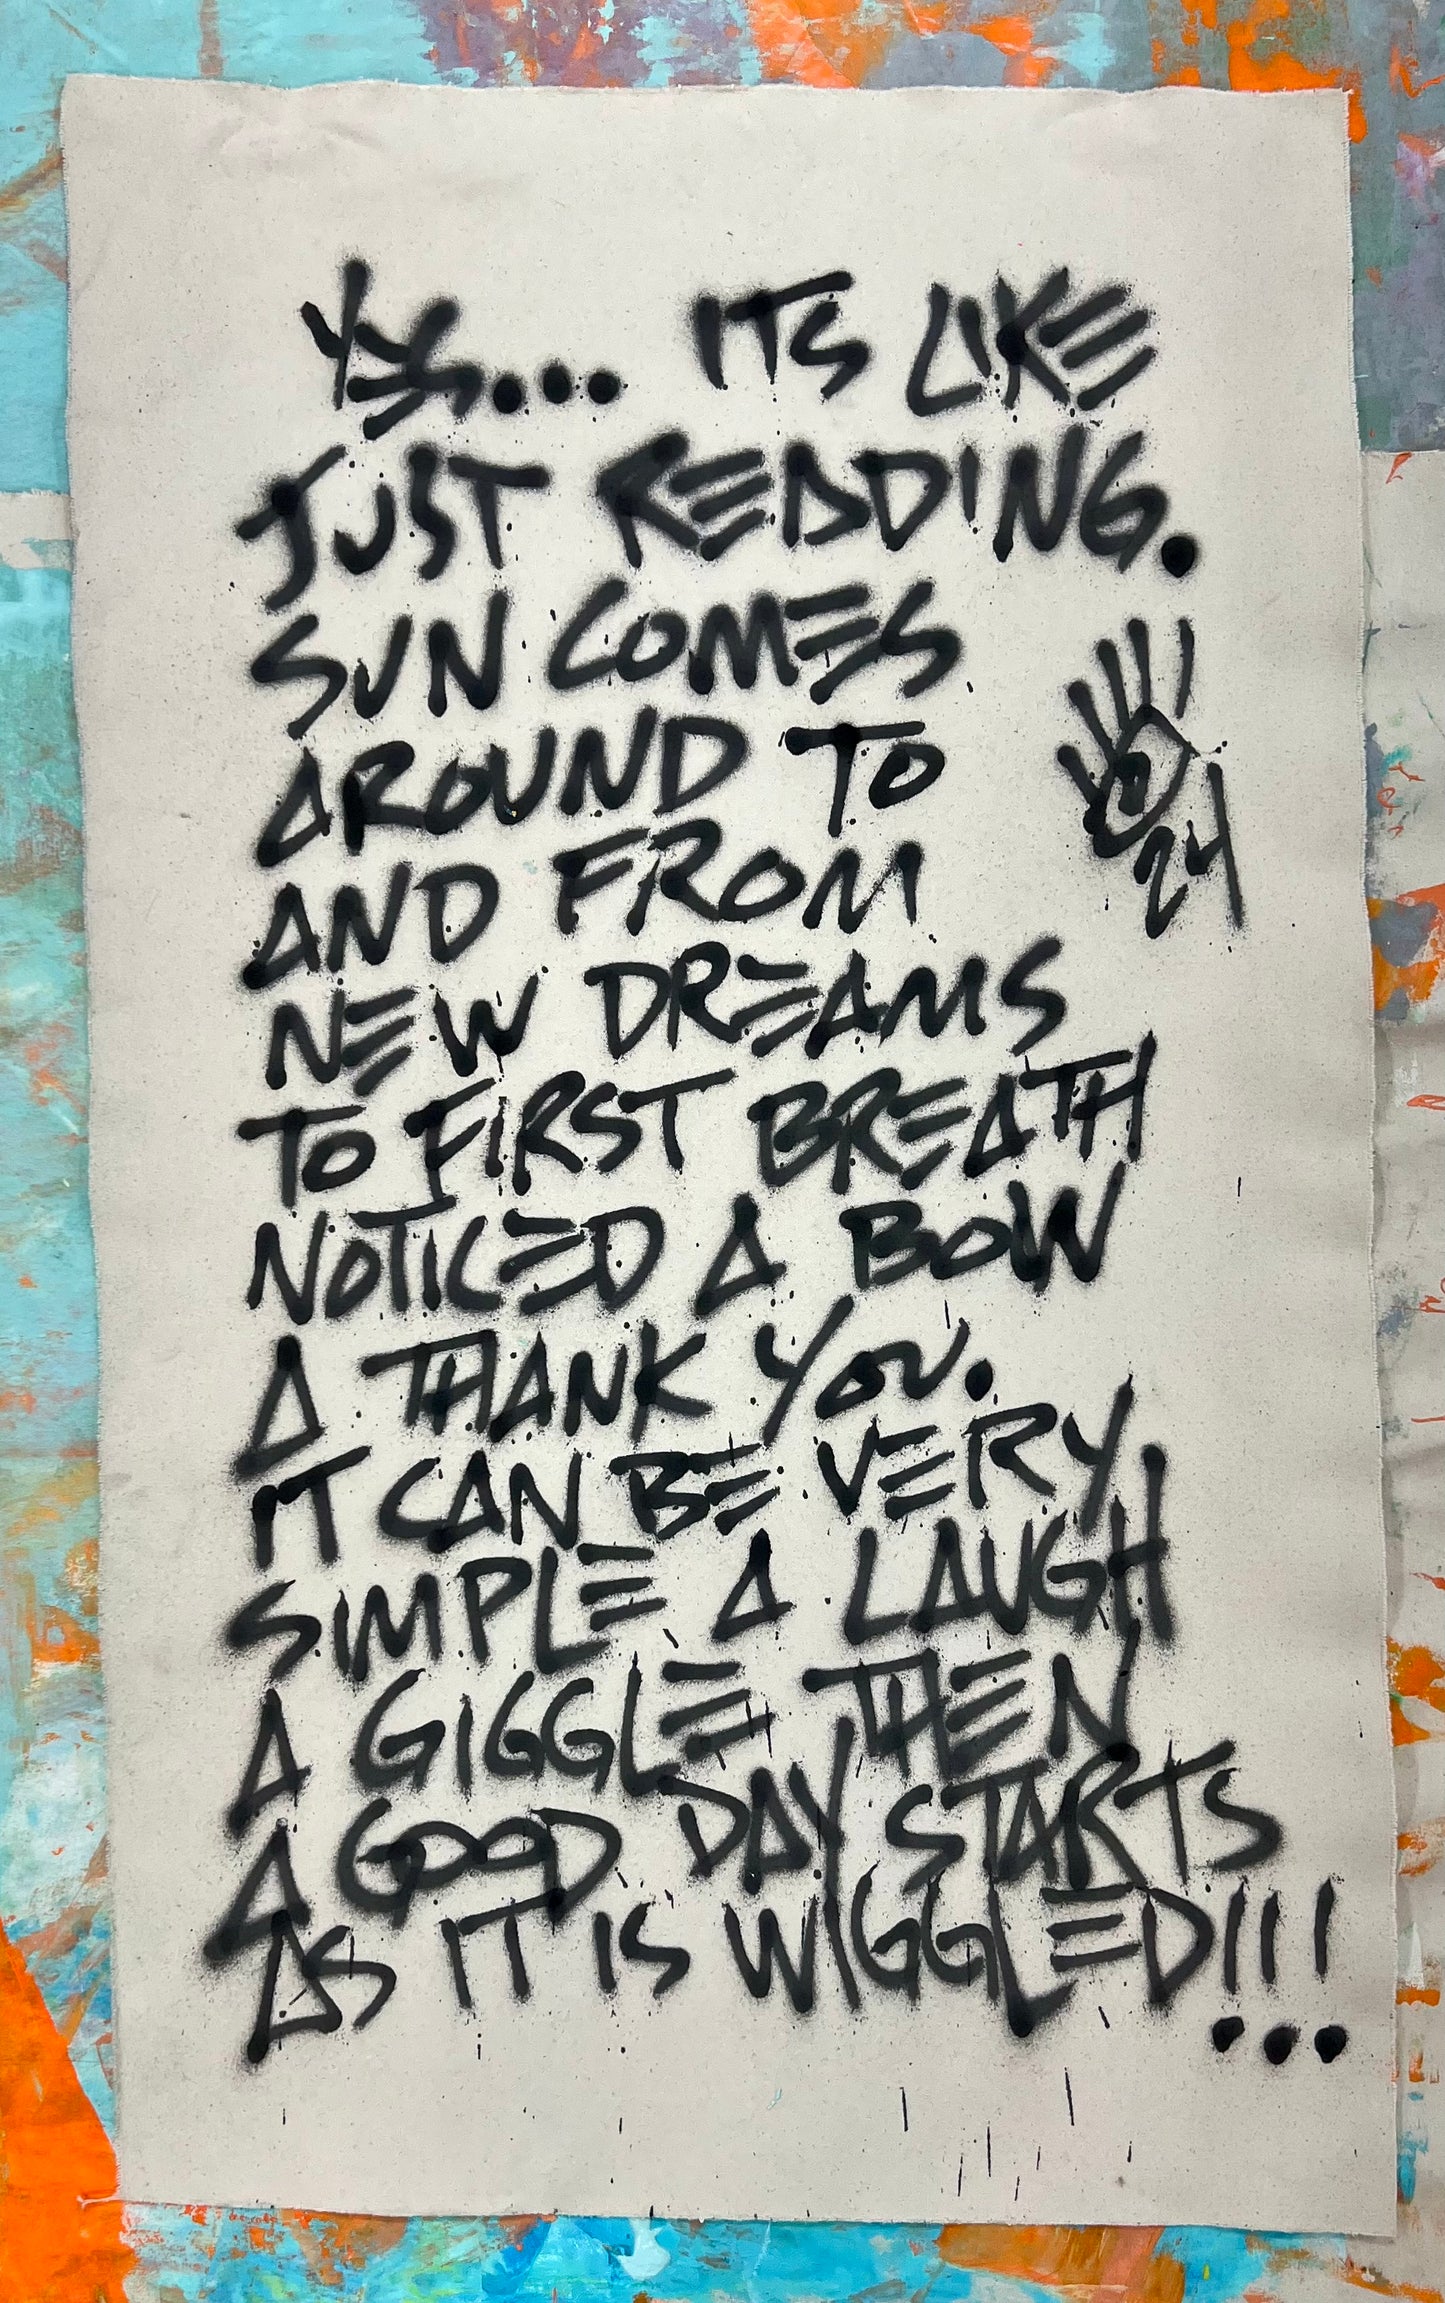 YES... ITS LIKE
JUST READING.
SUN COMES
AROUND TO
AND FROM
24
NEW DREAMS
TO FIRST BREATH
NOTICED A BOW
A THANK YOU.
IT CAN BE VERY
SIMPLE A LAUGH
A GIGGLE THEN
A GOOD DAY STARTS
AS IT IS WIGGLED!!!...